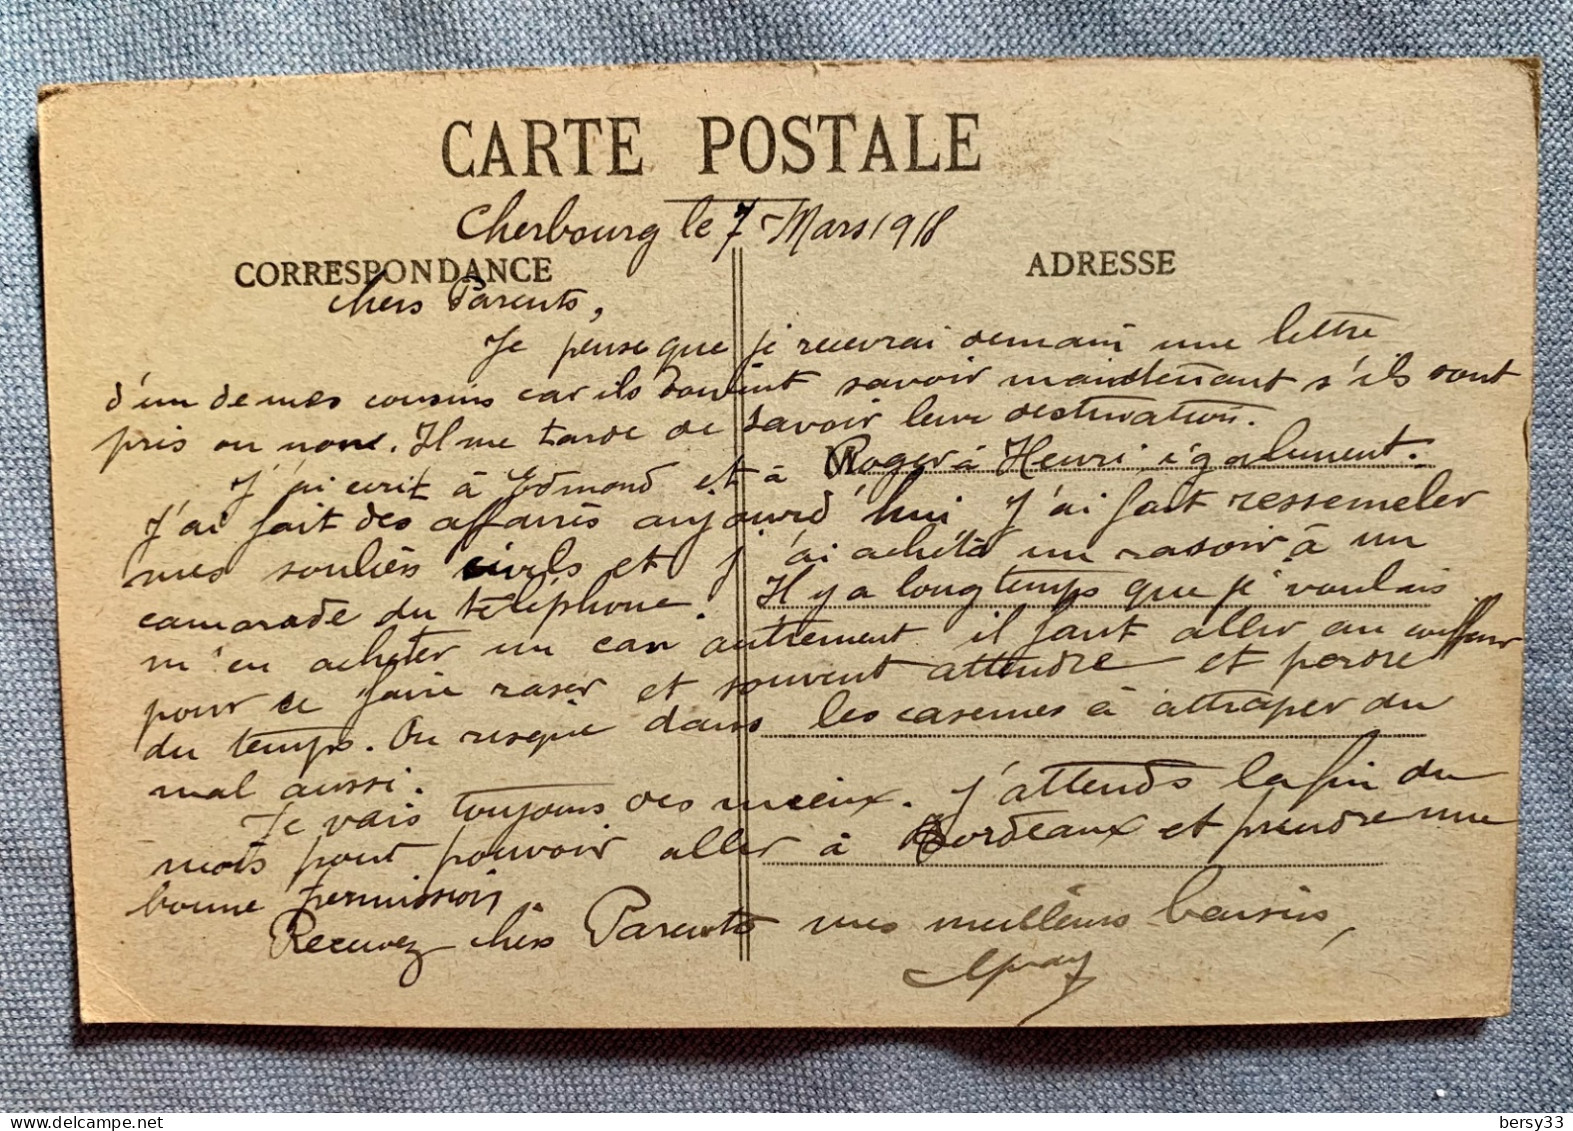 CARTE POSTALE
Cherbourg le 7 Mars 1918
CORRESPONDANCE
ADRESSE
Chers Parents,
Je pense que je recevrai demain une lettre
d'un de mes cousins car ils doivent savoir maintenant s'ils sont
pris ou non. Il me tarde de savoir leur destination.
J'ai écrit à Edmond et à Roger à Henri également.
J'ai fait des affaires aujourd'hui J'ai fait ressemeler
mes souliers civils et j'ai acheté un rasoir à un
camarade du téléphone. Il y a longtemps que je voulais
m'en acheter un car autrement il faut aller au coiffeur
pour se faire raser et souvent attendre et perdre
du temps. On risque dans les casernes à attraper du
mal aussi.
Je vais toujours des mieux. J'attends la fin du
mois pour pouvoir aller à Bordeaux et prendre une
bonne permission,
Recevez chers Parents mes meilleurs baisers,
bersy33